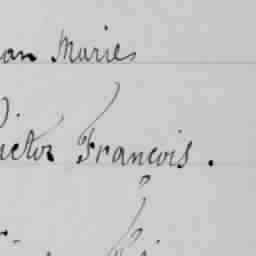 an Marie
ictor François.